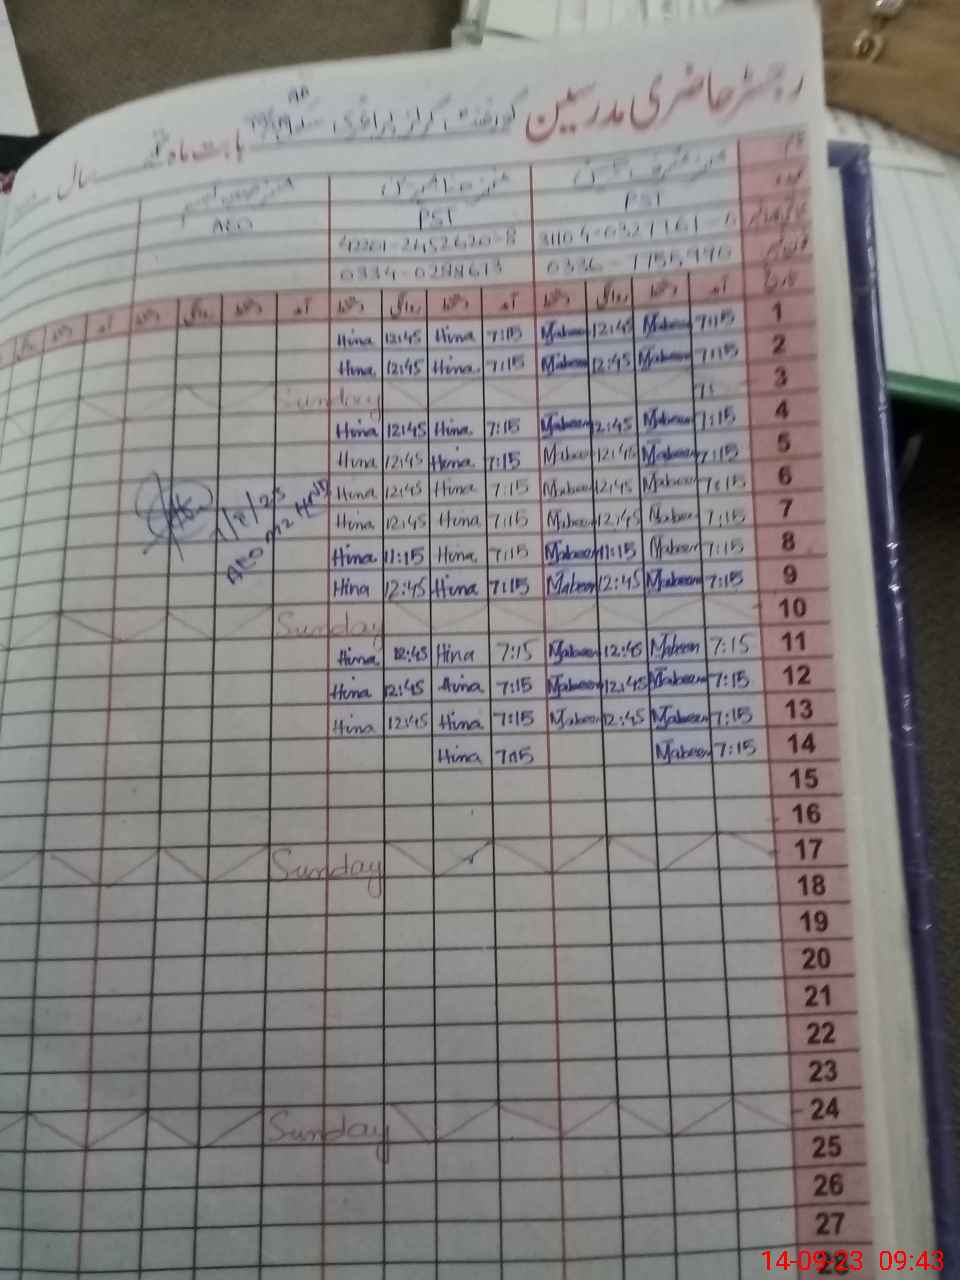 رجسٹر حاضری مدرسین گورنمنٹ گرلز پرائمری بابت ماہ سال
PST PST AEO
0336-7755990 0334-0288613
تاریخ آمد دستخط روانگی دستخط آمد دستخط روانگی دستخط آمد دستخط روانگی دستخط آمد دستخط
1 7:15 Mabeen 12:45 Mabeen 7:15 Hina 12:45 Hina
2 7:15 Mabeen 12:45 Mabeen 7:15 Hina 12:45 Hina
3 7: Sunday
4 7:15 Mabeen 12:45 Mabeen 7:15 Hina 12:45 Hina
5 7:15 Mabeen 12:45 Mabeen 7:15 Hina 12:45 Hina
6 7:15 Mabeen 12:45 Mabeen 7:15 Hina 12:45 Hina
7 7:15 Mabeen 12:45 Mabeen 7:15 Hina 12:45 Hina
8 7:15 Mabeen 11:15 Mabeen 7:15 Hina 11:15 Hina
9 7:15 Mabeen 12:45 Mabeen 7:15 Hina 12:45 Hina
10 Sunday
11 7:15 Mabeen 12:45 Mabeen 7:15 Hina 12:45 Hina
12 7:15 Mabeen 12:45 Mabeen 7:15 Hina 12:45 Hina
13 7:15 Mabeen 12:45 Mabeen 7:15 Hina 12:45 Hina
14 7:15 Mabeen 7:15 Hina
15
16
17 Sunday
18
19
20
21
22
23
24 Sunday
25
26
27
28
AEO
14-09-23 09:43